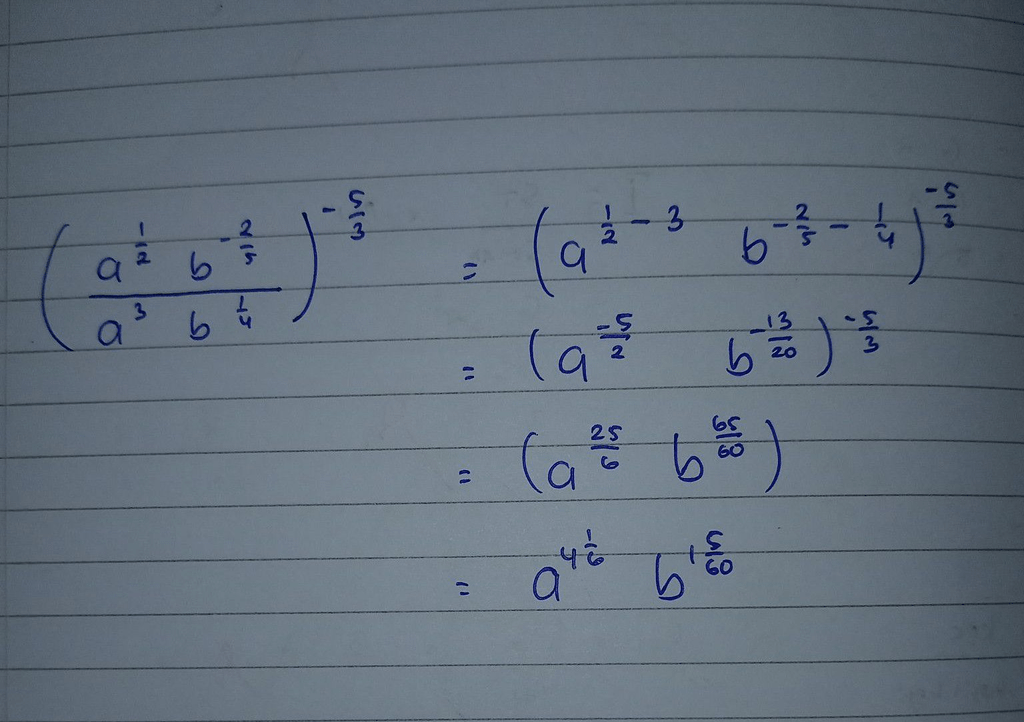 (a^{1/2} b^{-2/5} / a^3 b^{1/4})^{-5/3} = (a^{1/2 - 3} b^{-2/5 - 1/4})^{-5/3}
= (a^{-5/2} b^{-13/20})^{-5/3}
= (a^{25/6} b^{65/60})
= a^{4 1/6} b^{1 5/60}